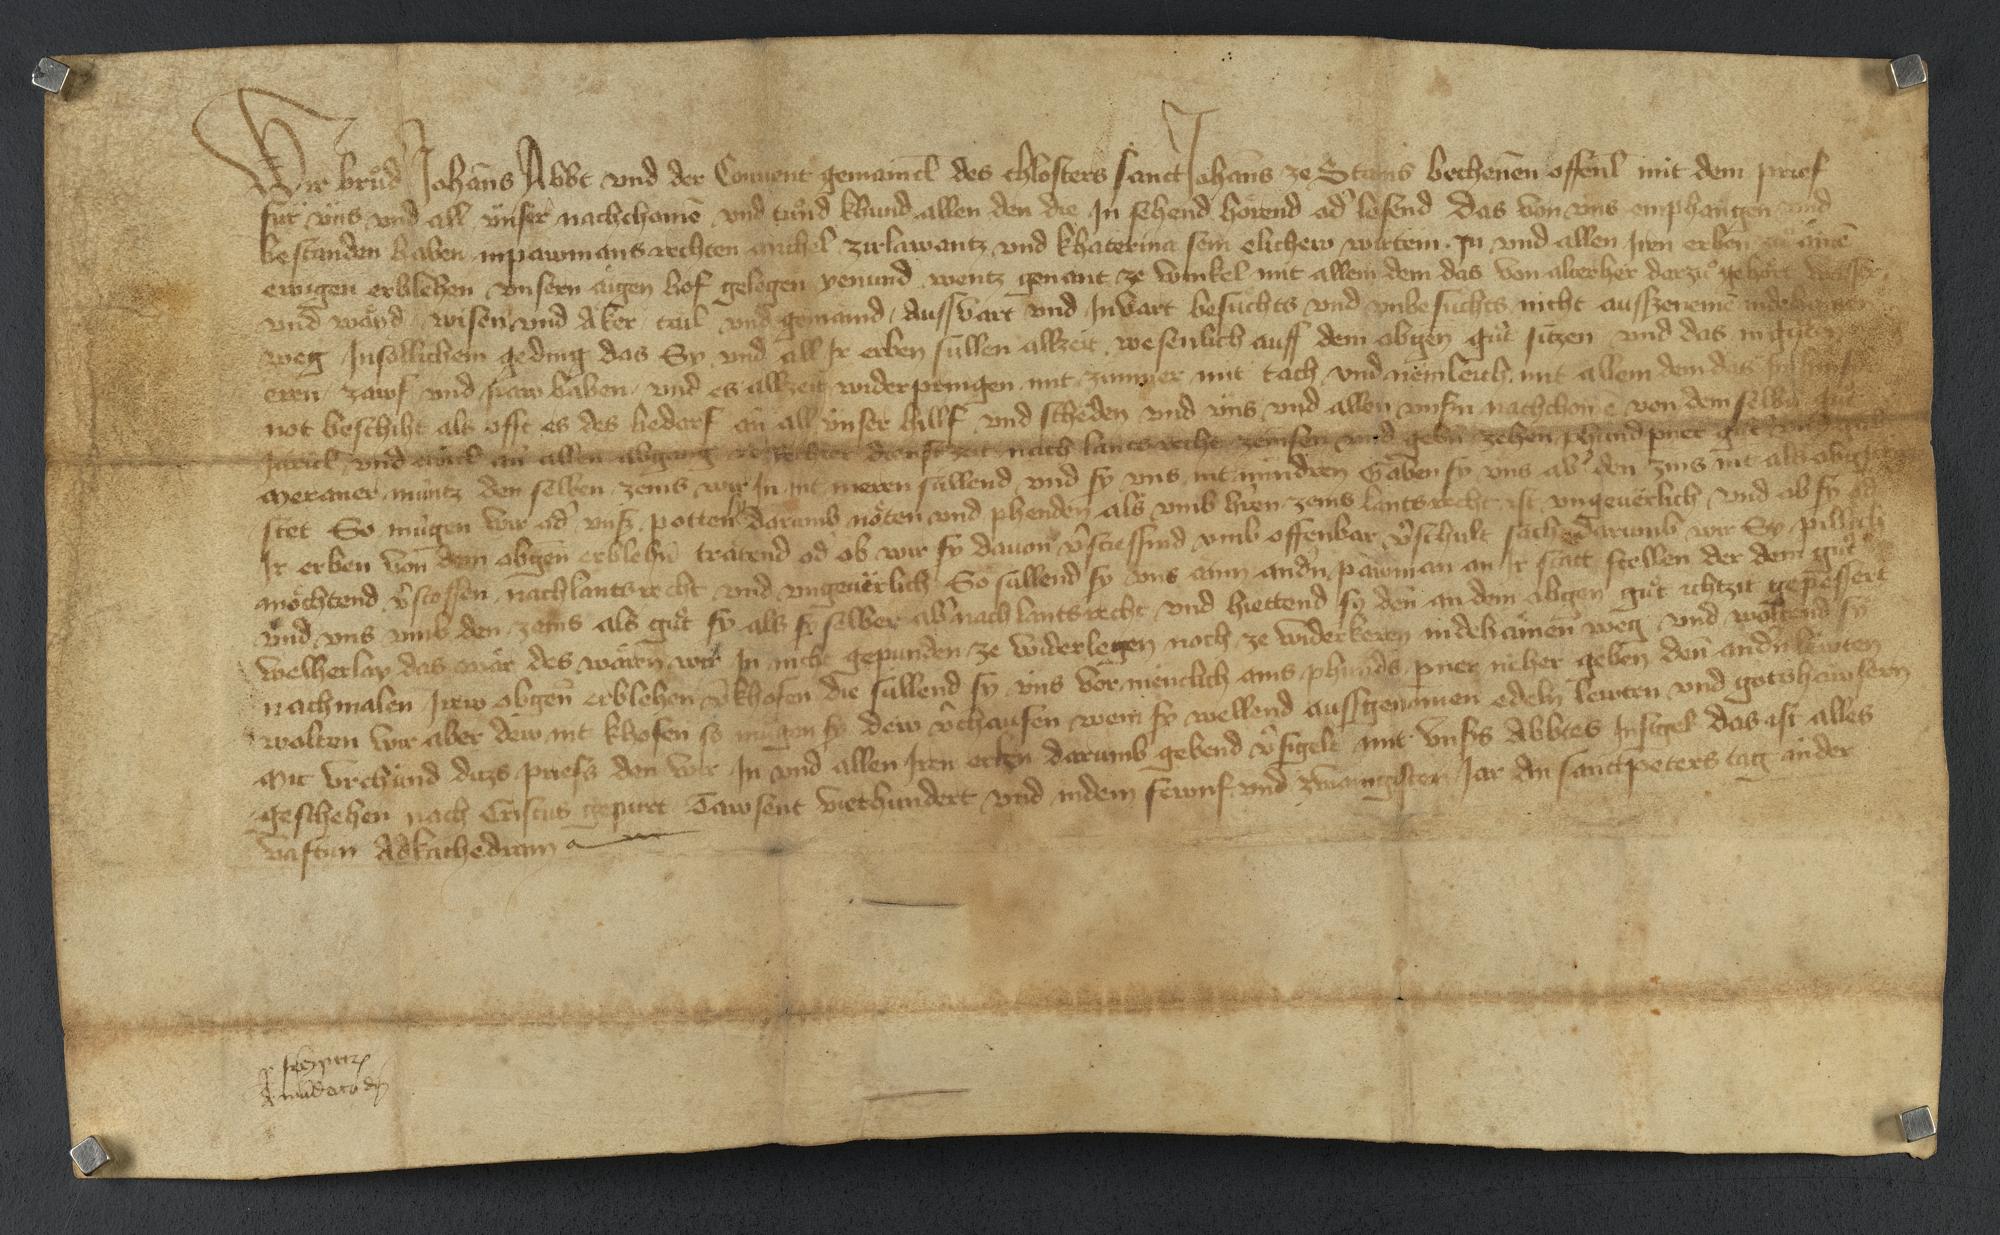 Wir brůd Johans Abbt vnd der Conuent gemainl des chlosters sanct Johans ze Stams bechenen offenl mit dem prief
fur vns vnd all vnser nachchomē vnd tůnd khund allen den die In sehend hörend od lesend Das von vns emphangen vnd
bestanden haben inpawmans rechten michel zirlawantz vnd khaterina sein elichew wirtein In vnd allen Iren erben zu ainē
ewigen erblehen vnsern aigen hof gelegen wentz genant ze winkel mit allem dem das von alterher darzů gehört wasser
vnd wayd wisen vnd Aker tail vnd gemaind Aussvart vnd Invart besuchts vnd vnbesuchts nicht auszenemē indehainen
weg Insollichem geding das Sy vnd all Ir erben sullen allzeit wesenlich auff dem obgen gůt sitzen vnd das in guten
eren zawf vnd paw haben vnd es allzeit widerpringen mit zimmer mit tach vnd nemleich mit allem dem das
not beschiht als offt es des bedarf an all vnser hillf vnd scheden vnd vns vnd allen vnsn nachchomē von dem selbn gůt
Järicl vnd ewicl an allen abgang ze rechter dienst zeit nach lants recht zeinsen vnd gebn zehen phund pner gůt
meraner müntz den selben zeins wir In nit meren sullend vnd sy vns nit mindren Gäben sy vns ab den zins nit als obgeschriben
stet So mügen wir od vnser potten darumb nöten vnd phenden als vmb hren zeins lantsrecht ist vngeuerlich vnd ab sy od
Ir erben von dem obgen erblehn trätend od ob wir sy dauon vstiessind vmb offenbar vschult sache Darumb wir Sy pillich
möchtend vstossen nachlantsrecht vnd vngeuerlich So sullend sy vns ainn andn pawman an Ir statt stellen der dem gůt
vnd vns vmb den zeins als gůt sy als sy selber ab nach lantsrecht vnd hiettend sy den an dem obgen gůt ichtzit gepessert
welherlay das wär des wären wir In nicht gepunden ze widerlegen noch ze widerkeren indehainen weg vnd woltend sy
nachmalen Irew obgen erblehen vkhofen die sullend sy vns vor mencklich ains phunds pner neher geben den andn lewten
wolten wir aber dew nit khofen so mügen sy dew vchaufen wem sy wellend aussgenomen edeln lewten vnd gotshäwsern
Mit vrchünd dizs priefs den wir In vnd allen Iren erben darumb gebend vsigelt mit vnsrs Abbtes Insigel das ist alles
geschehen nach Cristus gepurt Tawsent vierhundert vnd indem fewnf vnd zwaingisten Jar An sanctpeters tag ander
vastun Adkathedram